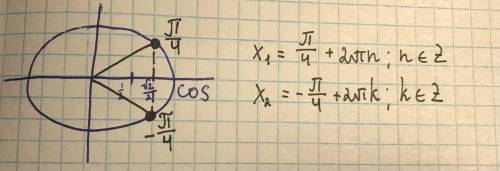 π/4
1/2
√2/2
cos
-π/4
x₁ = π/4 + 2πn; n ∈ Z
x₂ = -π/4 + 2πk; k ∈ Z